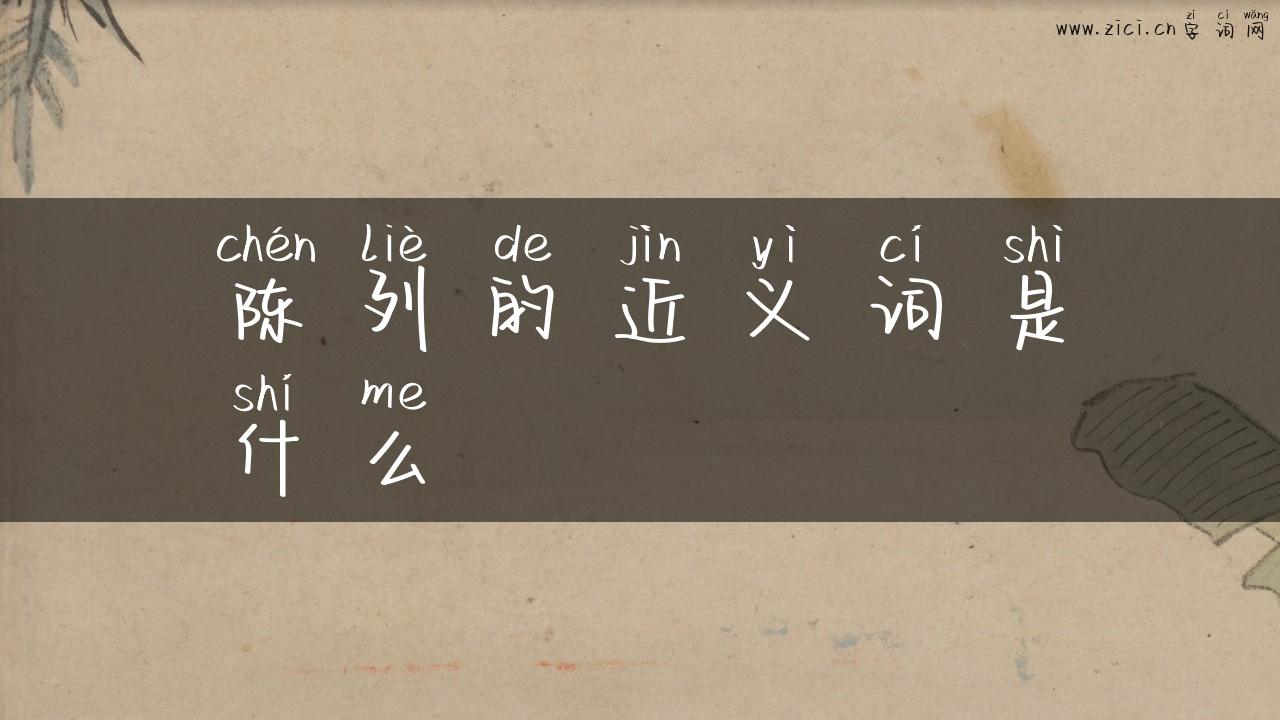 zì cí wǎng
www.zici.cn 字词网
chén liè de jìn yì cí shì
陈列的近义词是
shí me
什么